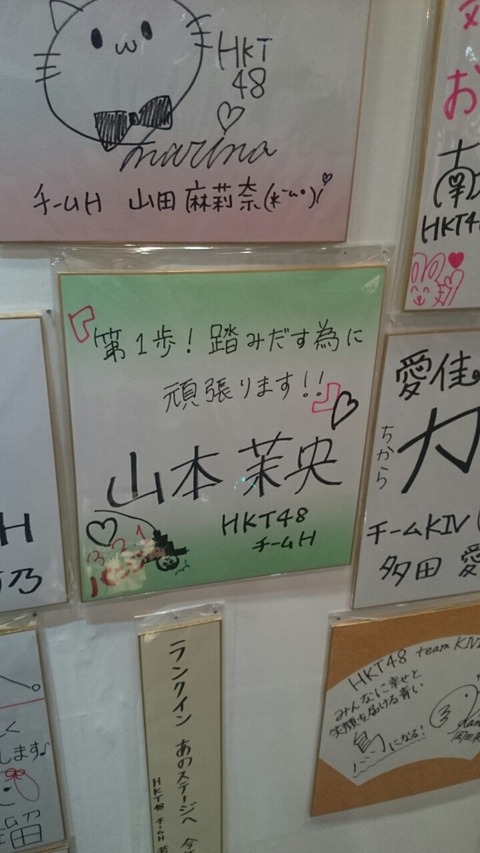 HKT
48
marina
チームH 山田 麻莉奈
お
南
HKT4
『第1歩！踏みだす為に
頑張ります!!』
山本 茉央
HKT48
チームH
3.2.1
愛佳
ちから
力
チームKⅣ
多田 愛
H
乃
ランクイン あのステージへ
HKT48 チームH
HKT48 team KⅣ
みんなに幸せと
笑顔を届ける青い
鳥になる！
します♪
留